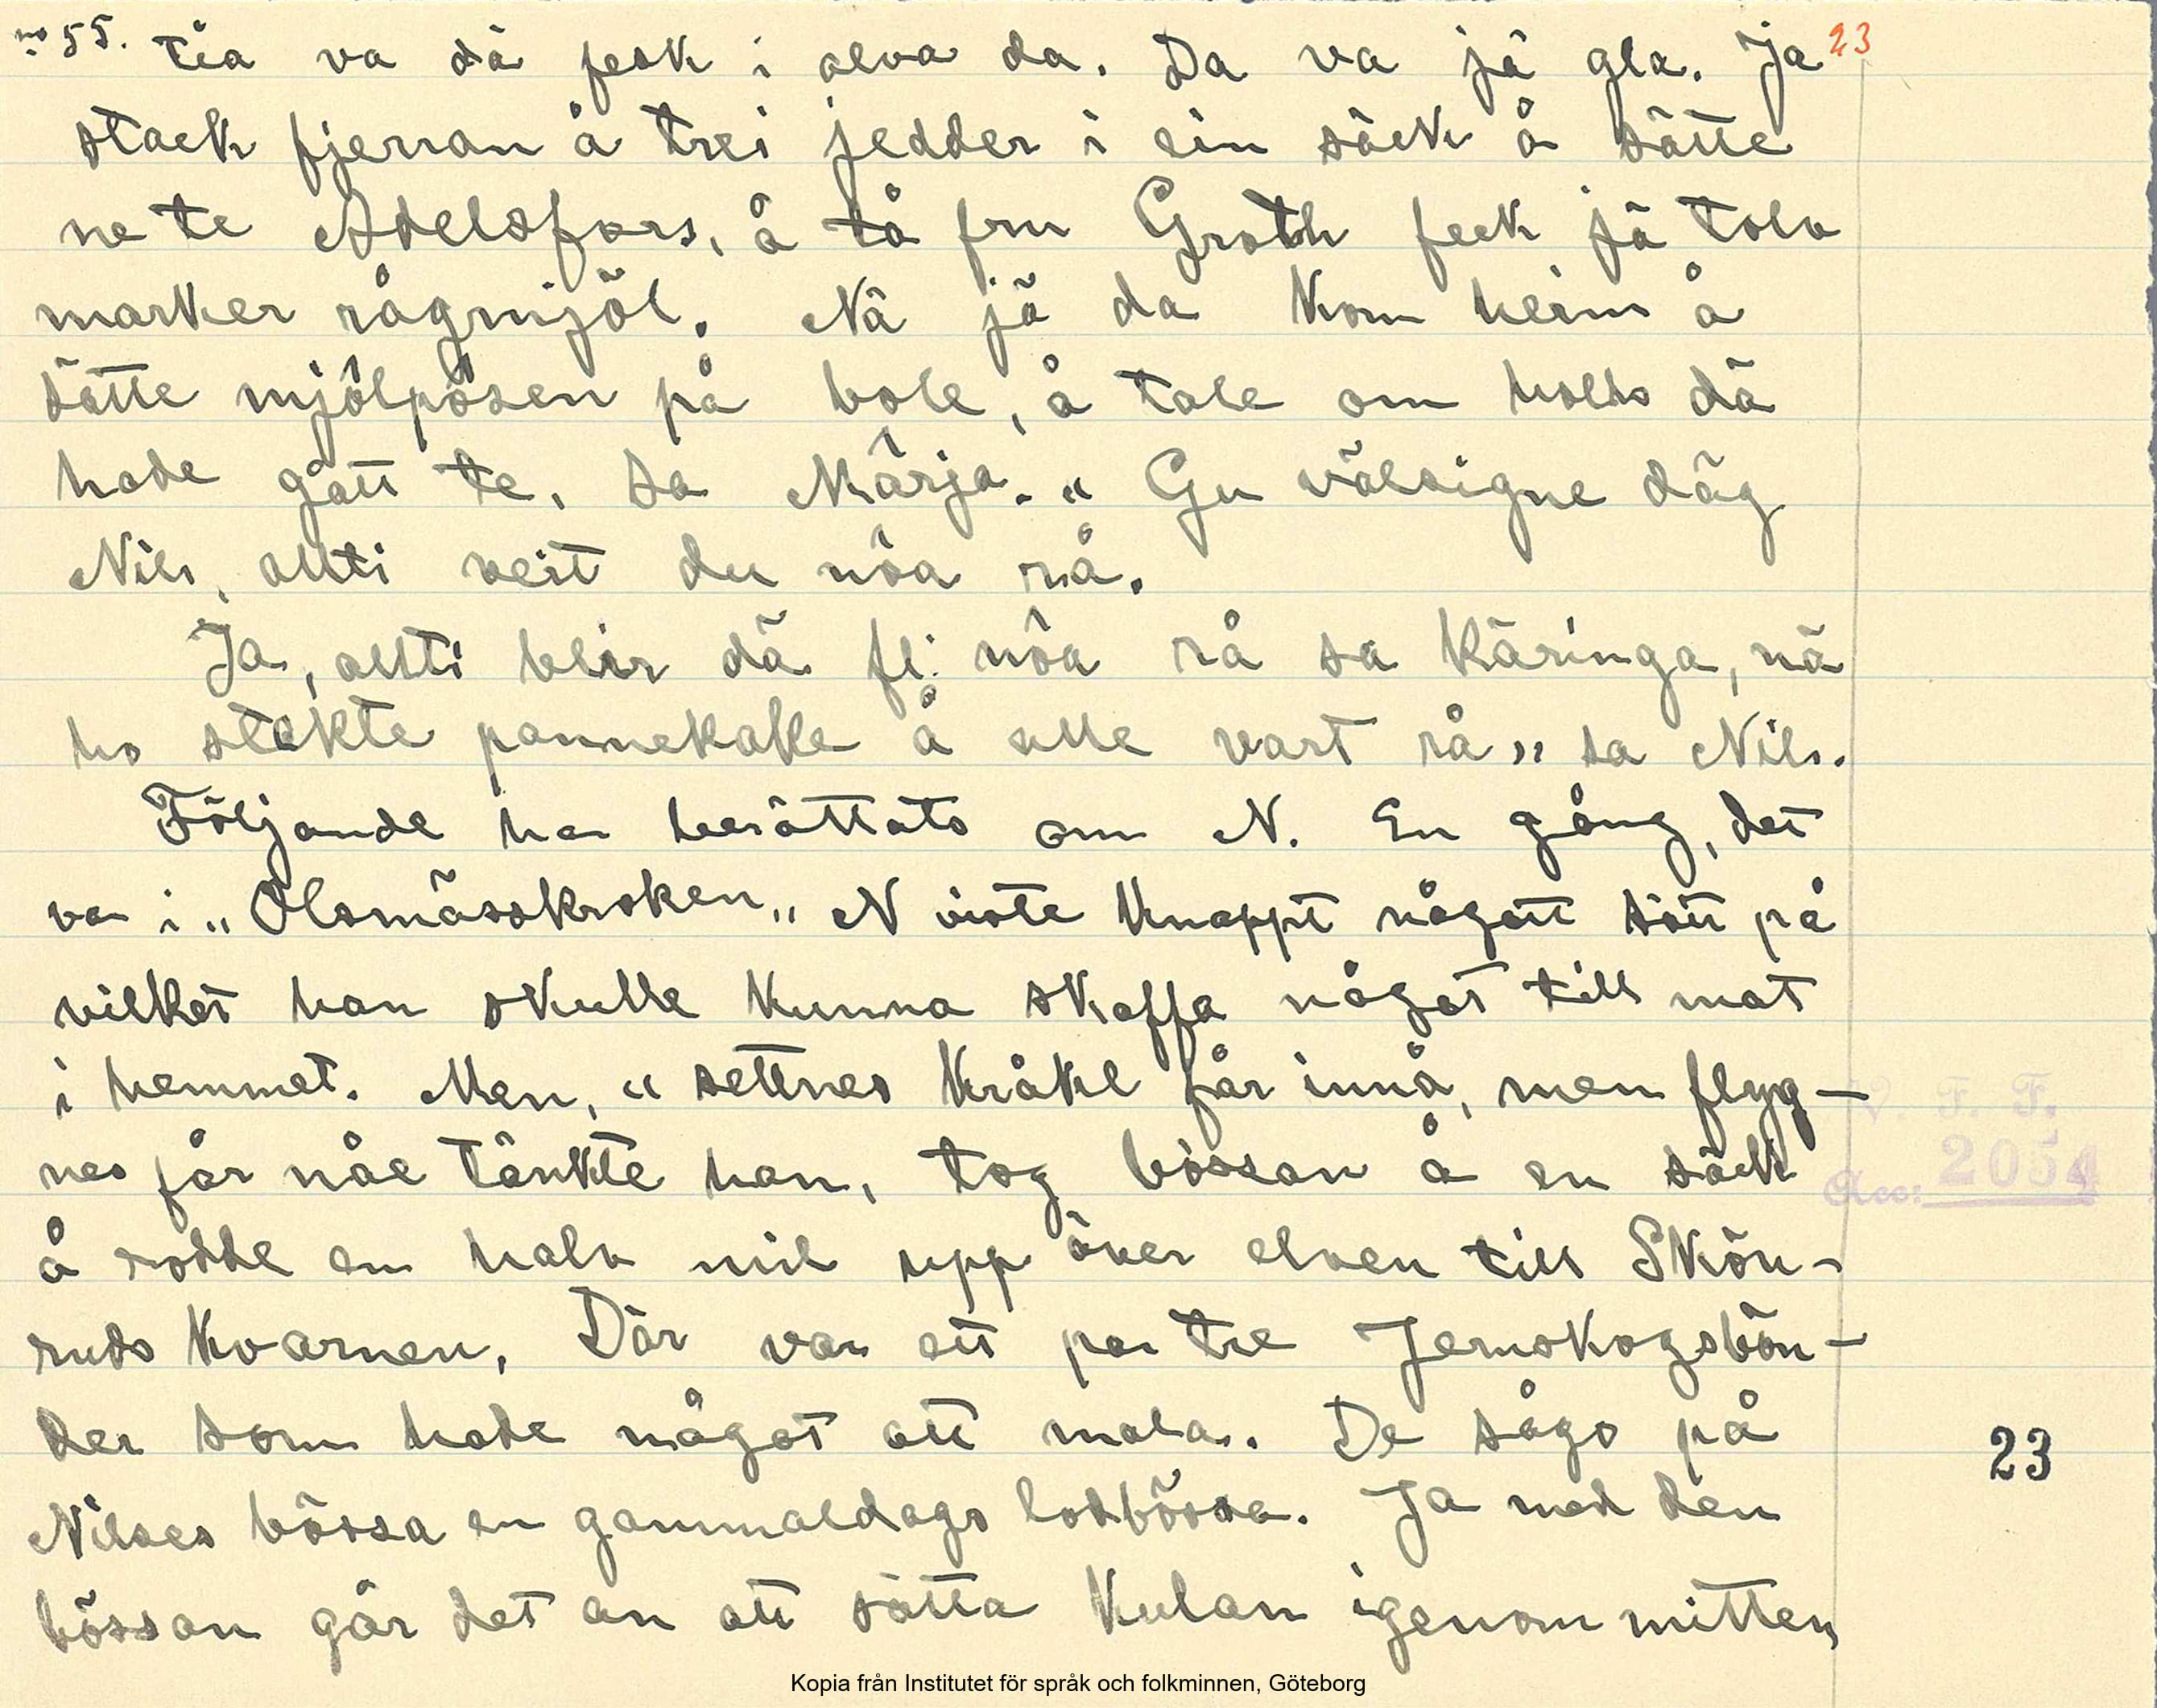 no 55. tia va dä fesk i ælva da. Da va jä gla. Ja 23
stack fjerran å trei jedder i ein säck å sätte
ne te Adelsfors, å tå fru Groth feck jä tolv
marker rågmjöl. Nä jä da kom heim å
sätte mjölpösen på bole, å tale om holls dä
hade gått te, sa Märja. "Gu välsigne däg
Nils, allti veit du nöa rå.
Ja, allti blir dä fl. nöa rå sa käringa, nä
ho stekte pannekake å alle vart rå" sa Nils.
Följande har berättats om N. En gång, det
var i "Olsmässkroken" N viste knappt något sätt på
vilket han skulle kunna skaffa något till mat
i hemmet. Men, "settnes kråke får innå, men flyg-
nes får nåe tänkte han, tog bössan å en säck
å rodde en halv mil upp över elven till Skön-
ruds kvarnen, Där var ett par tre Jernskogsbön-
der som hade något att mala. De sågo på
Nilses bössa en gammaldags lodbössa. Ja med den
bössan går det an att sätta kulan igenom mitten
V. F. F.
Acc: 2054
23
Kopia från Institutet för språk och folkminnen, Göteborg